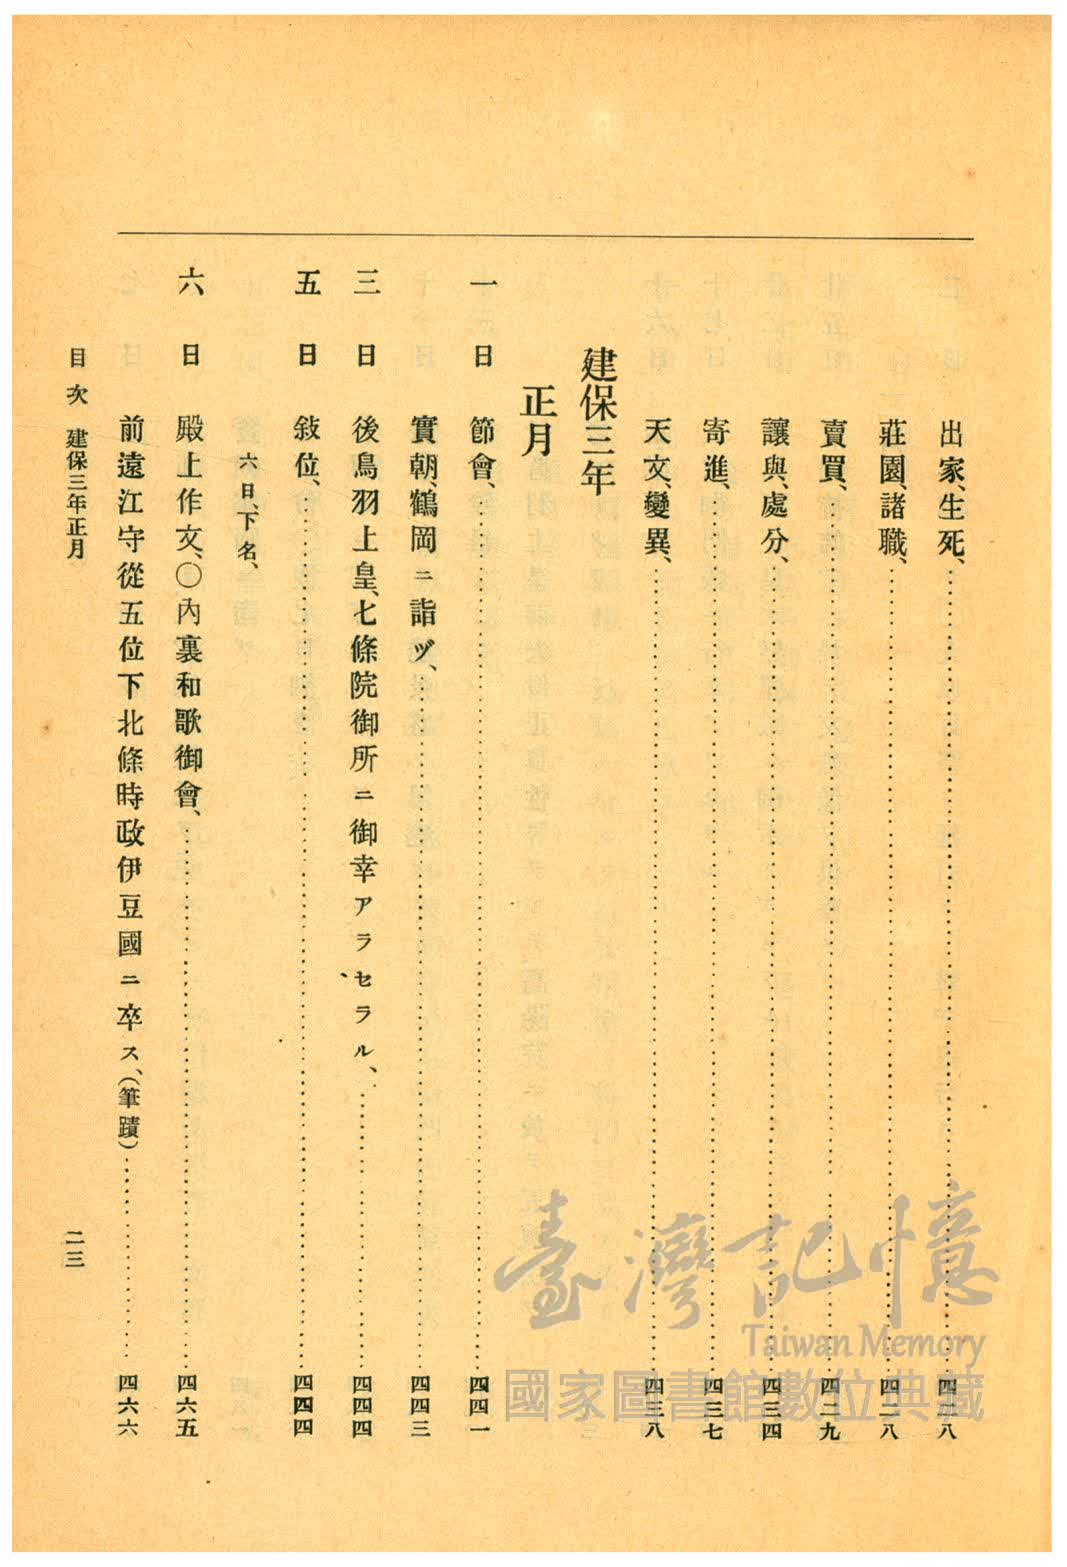 出家、生死、⋯⋯四二八
莊園、諸職、⋯⋯四二八
賣買、⋯⋯四二九
讓與、處分、⋯⋯四三四
寄進、⋯⋯四三七
天文、變異、⋯⋯四三八
建保三年
正月
一日 節會、⋯⋯四四一
實朝、鶴岡ニ詣ヅ、⋯⋯四四三
三日 後鳥羽上皇、七條院御所ニ御幸アラセラル、⋯⋯四四四
五日 敍位、⋯⋯四四四
六日、下名、
六日 殿上作文、〇內裏和歌御會、⋯⋯四六五
前遠江守從五位下北條時政伊豆國ニ卒ス、(筆蹟)⋯⋯四六六
目次 建保三年正月
二三
臺灣記憶
Taiwan Memory
國家圖書館數位典藏